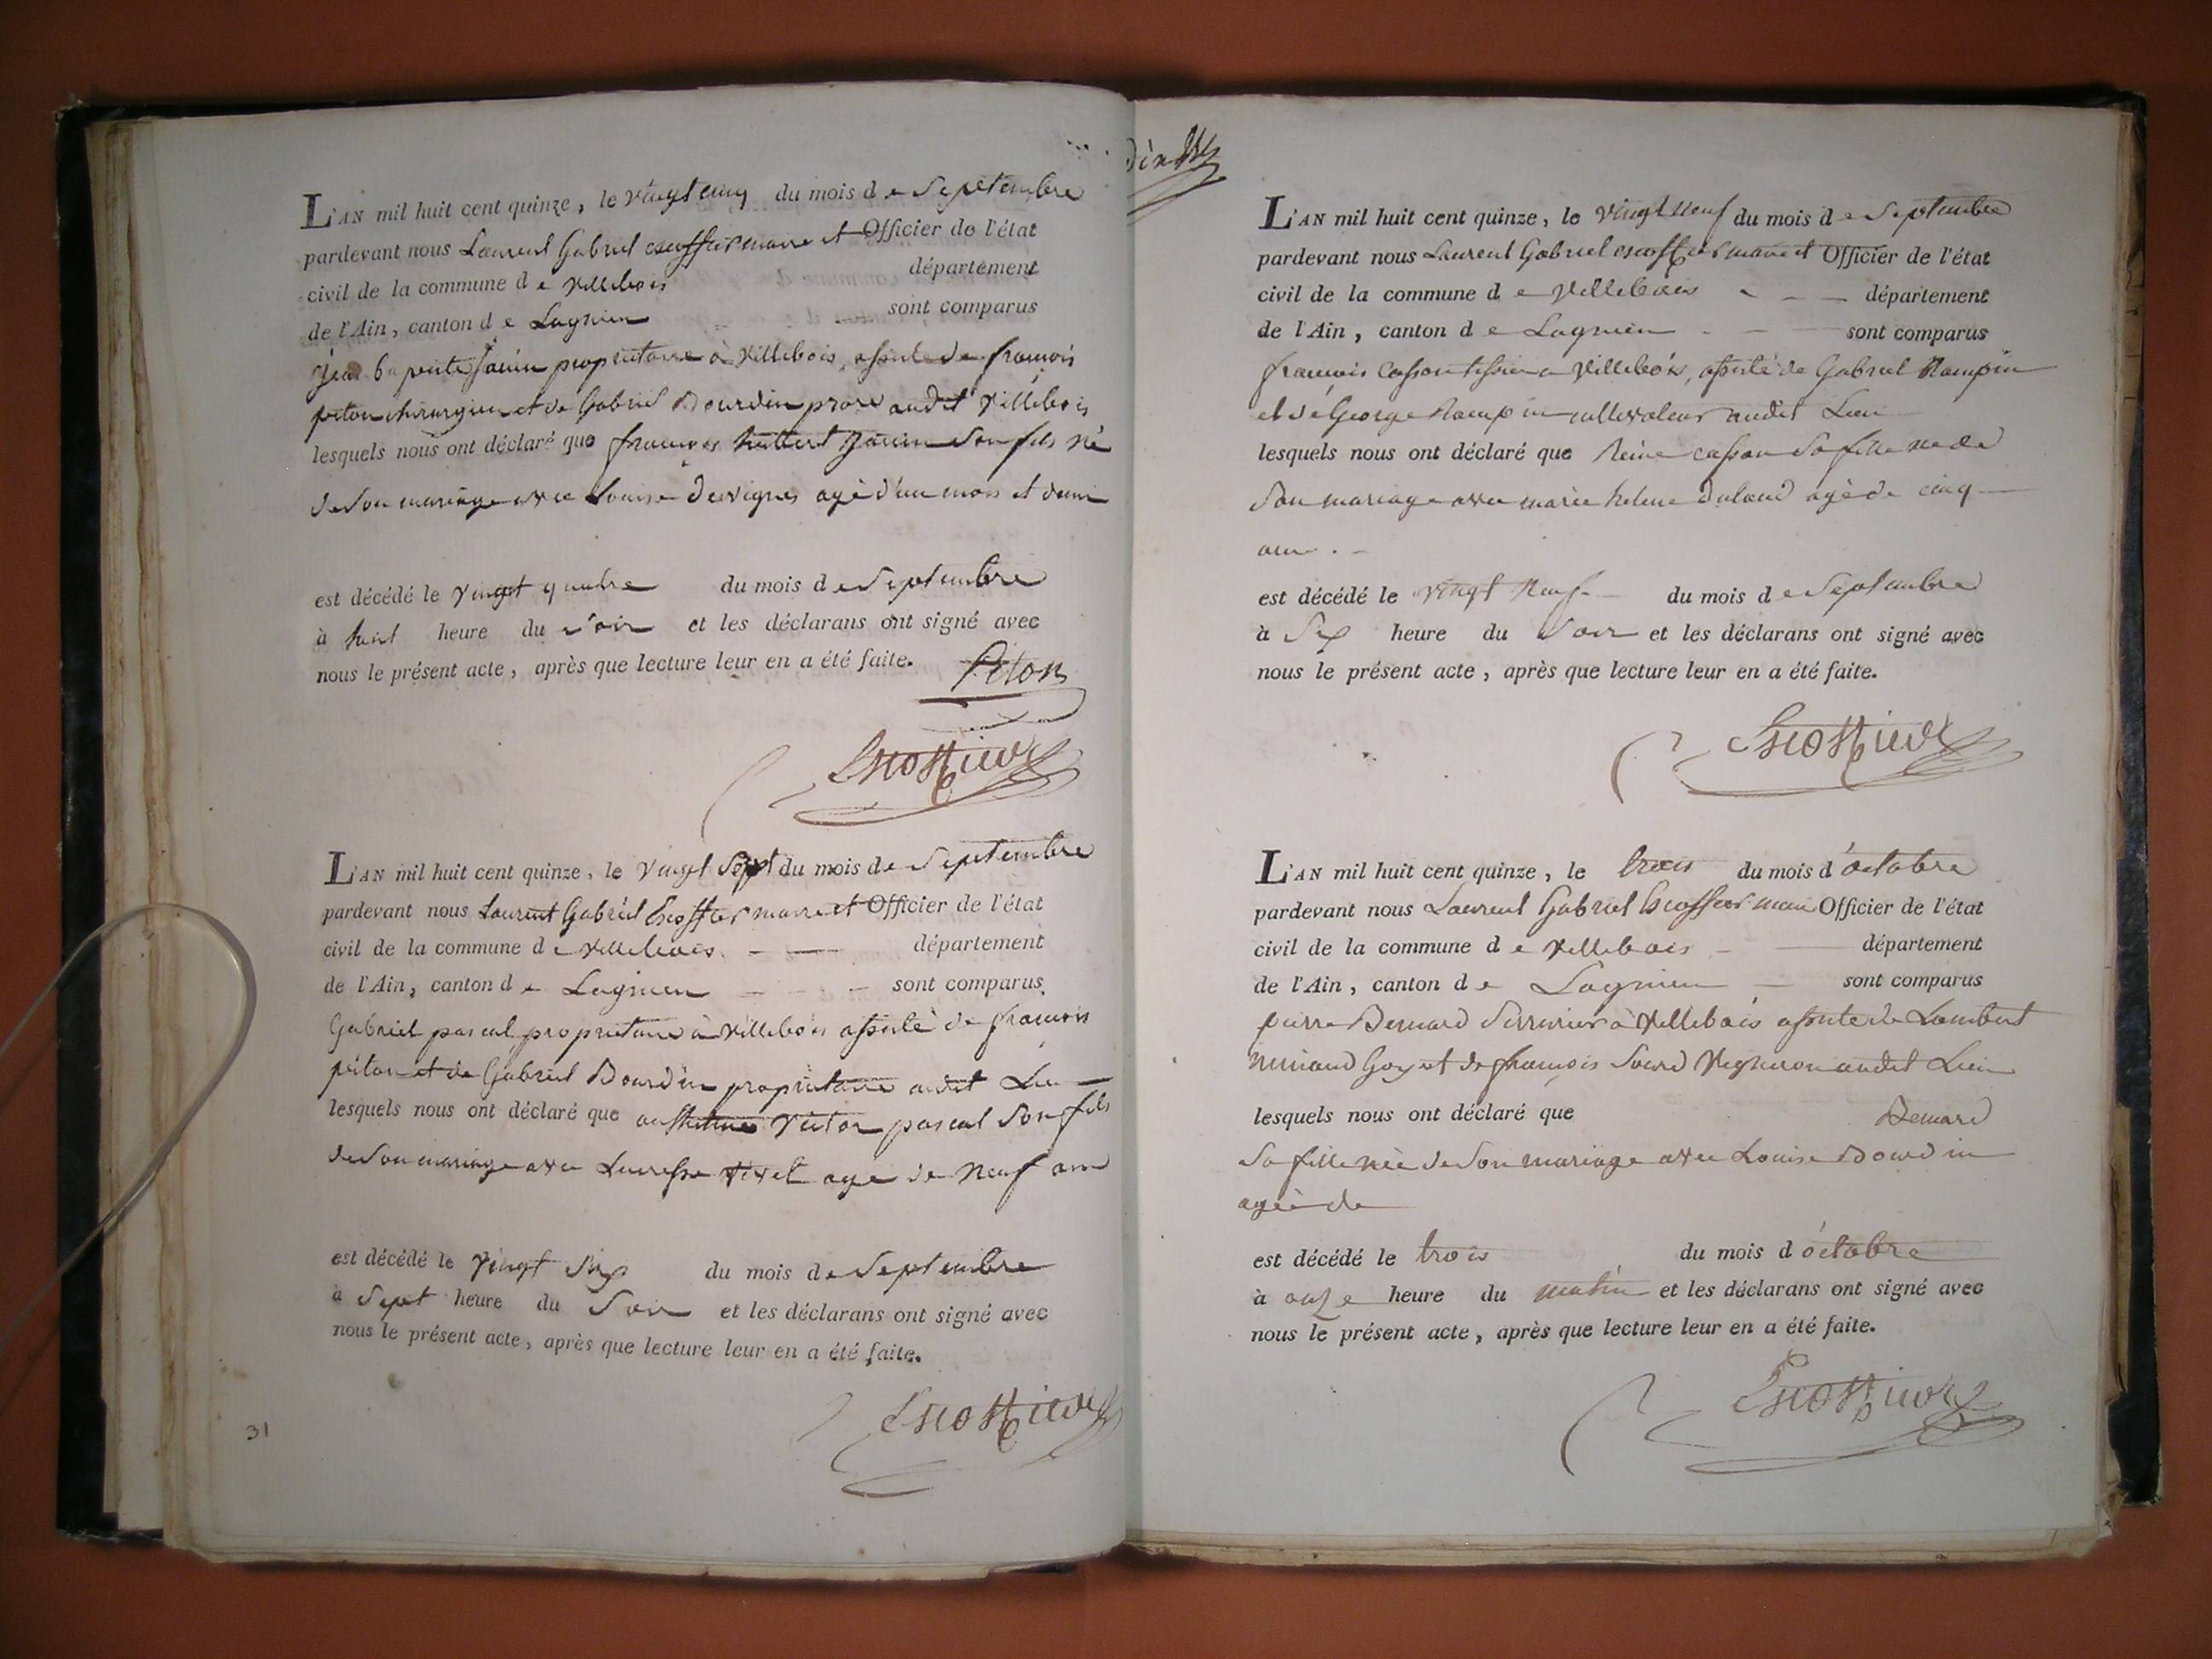 L'AN mil huit cent quinze, le vingt cinq du mois de Septembre
pardevant nous Laurent Gabriel escoffier maire et Officier de l'état
civil de la commune de Villebois département
de l'Ain, canton de Lagnieu sont comparus
jean baptiste janin propriétaire à Villebois, assisté de françois
piton chirurgien et de Gabriel Bourdin audit Villebois
lesquels nous ont déclaré que françois janin son fils né
de son mariage avec Louise Desvignes agé d'un mois et demi
est décédé le vingt quatre du mois de Septembre
à huit heure du soir et les déclarans ont signé avec
nous le présent acte, après que lecture leur en a été faite.
Piton
Escoffier
L'AN mil huit cent quinze, le vingt Sept du mois de Septembre
pardevant nous Laurent Gabriel Escoffier maire et Officier de l'état
civil de la commune de Villebois département
de l'Ain, canton de Lagnieu sont comparus
Gabriel pascal propriétaire à Villebois assisté de françois
piton et de Gabriel Bourdin propriétaire audit Lieu
lesquels nous ont déclaré que Victor pascal Son fils
de Son mariage avec Lucresse vivet agé de Neuf ans
est décédé le vingt Six du mois de Septembre
à Sept heure du Soir et les déclarans ont signé avec
nous le présent acte, après que lecture leur en a été faite.
Escoffier
31
L'AN mil huit cent quinze, le vingt Neuf du mois de Septembre
pardevant nous Laurent Gabriel escoffier maire et Officier de l'état
civil de la commune de Villebois département
de l'Ain, canton de Lagnieu sont comparus
françois Casson tissier a Villebois, assisté de Gabriel Rampin
et de George Rampin cultivateur audit Lieu
lesquels nous ont déclaré que Reine casson Sa fille né de
Son mariage avec marie helene agé de cinq
ans.
est décédé le vingt Neuf du mois de Septembre
à Six heure du Soir et les déclarans ont signé avec
nous le présent acte, après que lecture leur en a été faite.
Escoffier
L'AN mil huit cent quinze, le trois du mois d'octobre
pardevant nous Laurent Gabriel Escoffier maire Officier de l'état
civil de la commune de Villebois département
de l'Ain, canton de Lagnieu sont comparus
pierre Bernard Serrurier à Villebois assisté de Lambert
Goy et de françois Sourd Vigneron audit Lieu
lesquels nous ont déclaré que Bernard
Sa fille née de Son mariage avec Louise Bourdin
agée de
est décédé le trois du mois d'octobre
à onze heure du matin et les déclarans ont signé avec
nous le présent acte, après que lecture leur en a été faite.
Escoffier